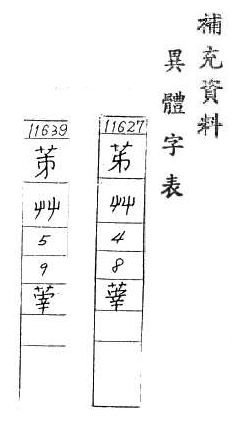 補充資料
異體字表
11627
艸
4
8
11639
艸
5
9